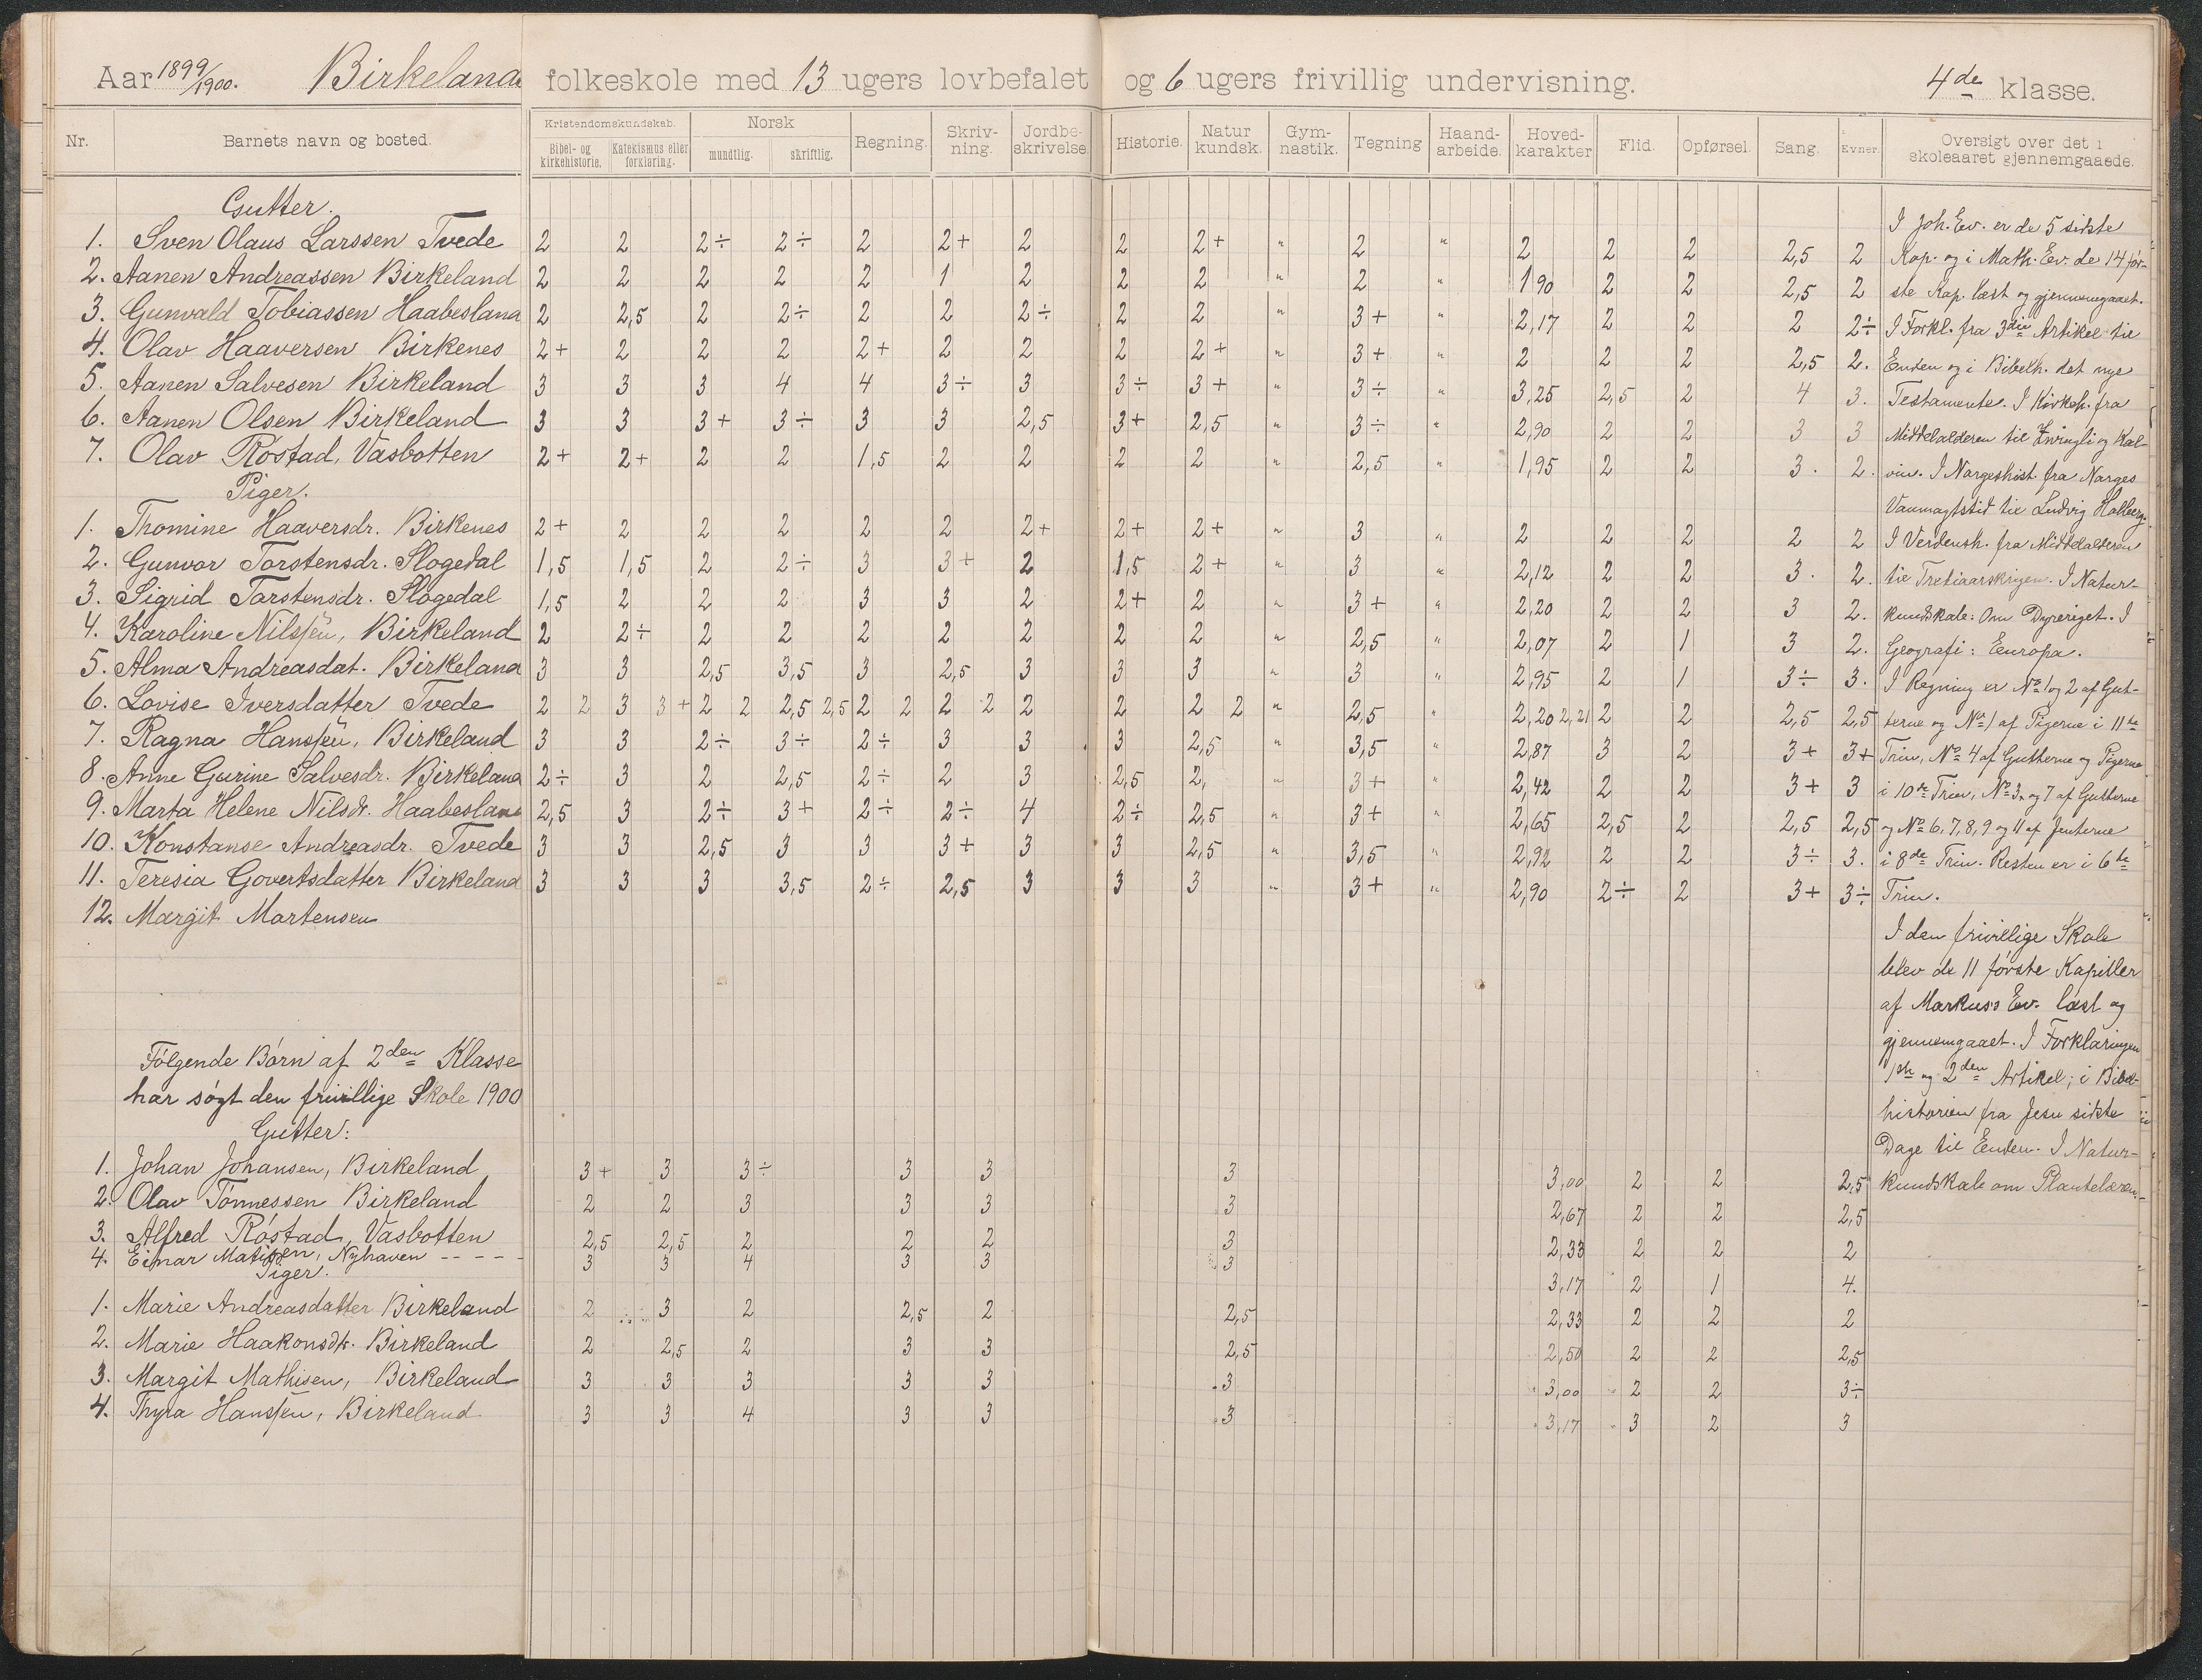 Aar 1899/1900. Birkeland folkeskole med 13 ugers lovbefalet og 6 ugers frivillig undervisning. 4de klasse.
Nr. Barnets navn og bosted. Kristendomskundskab. Bibel- og kirkehistorie. Katekismus eller forklaring. Norsk mundtlig. skriftlig. Regning. Skriv-ning. Jordbe-skrivelse. Historie. Natur kundsk. Gym-nastik. Tegning Haand-arbeide. Hoved-karakter Flid. Opførsel. Sang. Evner. Oversigt over det i skoleaaret gjennemgaaede.
Gutter.
1. Sven Olaus Larssen Tvede 2 2 2÷ 2÷ 2 2+ 2 2 2+ " 2 " 2 2 2 2,5 2
2. Aanen Andreassen Birkeland 2 2 2 2 2 1 2 2 2 " 2 " 1 90 2 2 2,5 2
3. Gunvald Tobiassen Haabesland 2 2,5 2 2÷ 2 2 2÷ 2 2 " 3+ " 2,17 2 2 2 2÷
4. Olav Haaversen Birkenes 2+ 2 2 2 2+ 2 2 2 2+ " 3+ " 2 2 2 2,5 2.
5. Aanen Salvesen Birkeland 3 3 3 4 4 3÷ 3 3÷ 3+ " 3÷ " 3,25 2,5 2 4 3.
6. Aanen Olsen Birkeland 3 3 3+ 3÷ 3 3 2,5 3+ 2,5 " 3÷ " 2,90 2 2 3 3
7. Olav Róstad, Vasbotten 2+ 2+ 2 2 1,5 2 2 2 2 " 2,5 " 1,95 2 2 3. 2.
Piger.
1. Thomine Haaversdr. Birkenes 2+ 2 2 2 2 2 2+ 2+ 2+ " 3 " 2 2 2 2 2
2. Gunvor Torstensdr. Slogedal 1,5 1,5 2 2÷ 3 3+ 2 1,5 2+ " 3 " 2,12 2 2 3. 2.
3. Sigrid Torstensdr. Slogedal 1,5 2 2 2 3 3 2 2+ 2 " 3+ " 2,20 2 2 3 2.
4. Karoline Nilssen, Birkeland 2 2÷ 2 2 2 2 2 2 2 " 2,5 " 2,07 2 1 3 2.
5. Alma Andreasdat. Birkeland 3 3 2,5 3,5 3 2,5 3 3 3 " 3 " 2,95 2 1 3÷ 3.
6. Lovise Iversdatter Tvede 2 2 3 3+ 2 2 2,5 2,5 2 2 2 2 2 2 2 2 " 2,5 " 2,20 2,21 2 2 2,5 2,5
7. Ragna Hanssen, Birkeland 3 3 2÷ 3÷ 2÷ 3 3 3 2,5 " 3,5 " 2,87 3 2 3+ 3+
8. Anne Gurine Salvesdr. Birkeland 2÷ 3 2 2,5 2÷ 2 3 2,5 2, " 3+ " 2,42 2 2 3+ 3
9. Marta Helene Nilsdr. Haabesland 2,5 3 2÷ 3+ 2÷ 2÷ 4 2÷ 2,5 " 3+ " 2,65 2,5 2 2,5 2,5
10. Konstanse Andreasdr. Tvede 3 3 2,5 3 3 3+ 3 3 2,5 " 3,5 " 2,92 2 2 3÷ 3.
11. Teresia Govertsdatter Birkeland 3 3 3 3,5 2÷ 2,5 3 3 3 " 3+ " 2,90 2÷ 2 3+ 3÷
12. Margit Martensen
Fólgende Bórn af 2den Klasse
har sógt den frivillige Skole 1900
Gutter:
1. Johan Johansen, Birkeland 3+ 3 3÷ 3 3 3 3,00 2 2 2,5
2. Olav Tónnessen Birkeland 2 2 3 3 3 3 2,67 2 2 2,5
3. Alfred Róstad, Vasbotten 2,5 2,5 2 2 2 3 2,33 2 2 2
4. Einar Matisen, Nyhaven - - - - 3 3 4 3 3 3 3,17 2 1 4.
Piger.
1. Marie Andreasdatter Birkeland 2 3 2 2,5 2 2,5 2,33 2 2 2
2. Marie Haakonsdtr. Birkeland 2 2,5 2 3 3 2,5 2,50 2 2 2,5
3. Margit Mathisen, Birkeland 3 3 3 3 3 3 3,00 2 2 3÷
4. Thyra Hanssen, Birkeland 3 3 4 3 3 3 3,17 3 2 3
I Joh. Ev. er de 5 sidste
Kap. og i Math. Ev. de 14 før-
ste Kap. læst og gjennemgaaet.
I Forkl. fra 3die Artikel til
Enden og i Bibelh. det nye
Testamente. I Kirkeh. fra
Middelalderen til Zwingli og Kal-
vin. I Norgeshist. fra Norges
Vanmagtstid til Ludvig Holberg.
I Verdensh. fra Middelalderen
til Trediaarskrigen. I Natur-
kundskab: Om Dyreriget. I
Geografi: Europa.
I Regning er No 1 og 2 af Gut-
terne og No 1 af Pigerne i 11te
Trin, No 4 af Gutterne og Pigerne
i 10de Trin, No 3 og 7 af Gutterne
og No 6, 7, 8, 9 og 11 af Jenterne
i 8de Trin. Resten er i 6te
Trin.
I den frivillige Skole
blev de 11 fórste Kapitler
af Markus's Ev. læst og
gjennemgaaet. I Forklaringen
1ste og 2den Artikel; i Bibel-
historien fra Jesu sidste
Dage til Enden. I Natur-
kundskab om Plantelæren.